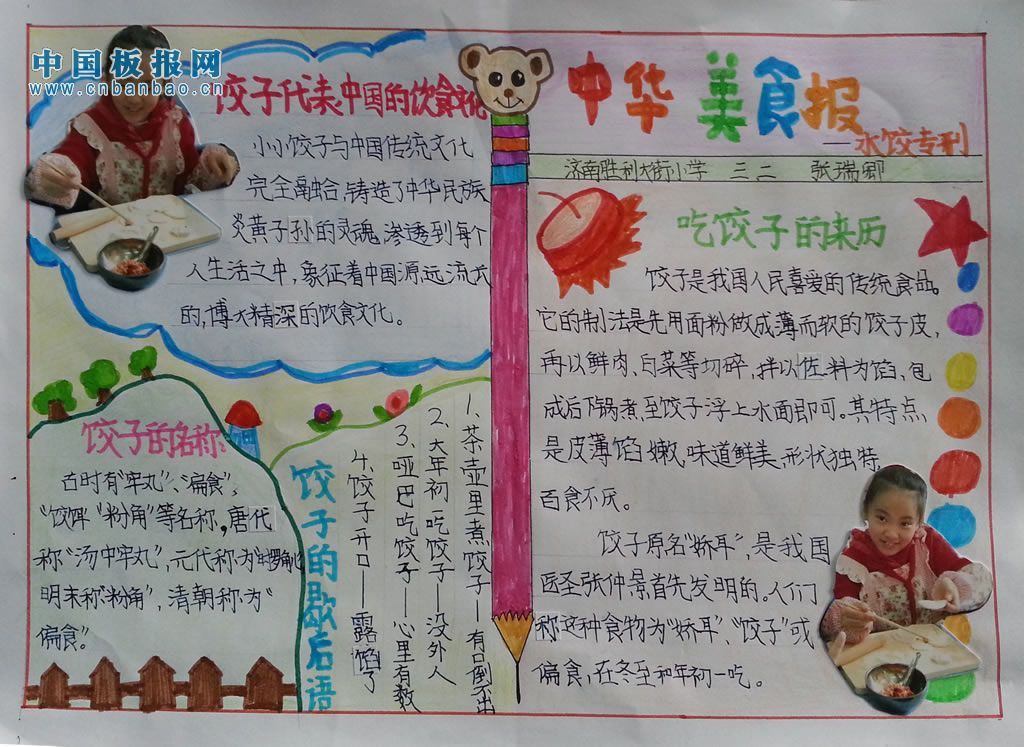 中国板报网
www.cnbanbao.cn
饺子代表中国的饮食文化
小小饺子与中国传统文化
完全融合,铸造了中华民族
炎黄子孙的灵魂,渗透到每个
人生活之中,象征着中国源远流长
的,博大精深的饮食文化。
饺子的名称:
古时有“牢丸”、“扁食”、
“饺饵”“粉角”等名称。唐代
称“汤中牢丸”,元代称为
明末称“粉角”,清朝称为“
扁食”。
饺子的歇后语
1、茶壶里煮饺子——有口倒不出
2、大年初一吃饺子——没外人
3、哑巴吃饺子——心里有数
4、饺子开口——露馅了
中华美食报
—水饺专刊
济南胜利大街小学 三二 张瑞卿
吃饺子的来历
饺子是我国人民喜爱的传统食品。
它的制法是先用面粉做成薄而软的饺子皮,
再以鲜肉、白菜等切碎,拌以佐料为馅,包
成后下锅煮至饺子浮上水面即可。其特点
是皮薄馅嫩,味道鲜美,形状独特,
百食不厌。
饺子原名“娇耳”,是我国
医圣张仲景首先发明的。人们
称这种食物为“娇耳”、“饺子”或
偏食,在冬至和年初一吃。